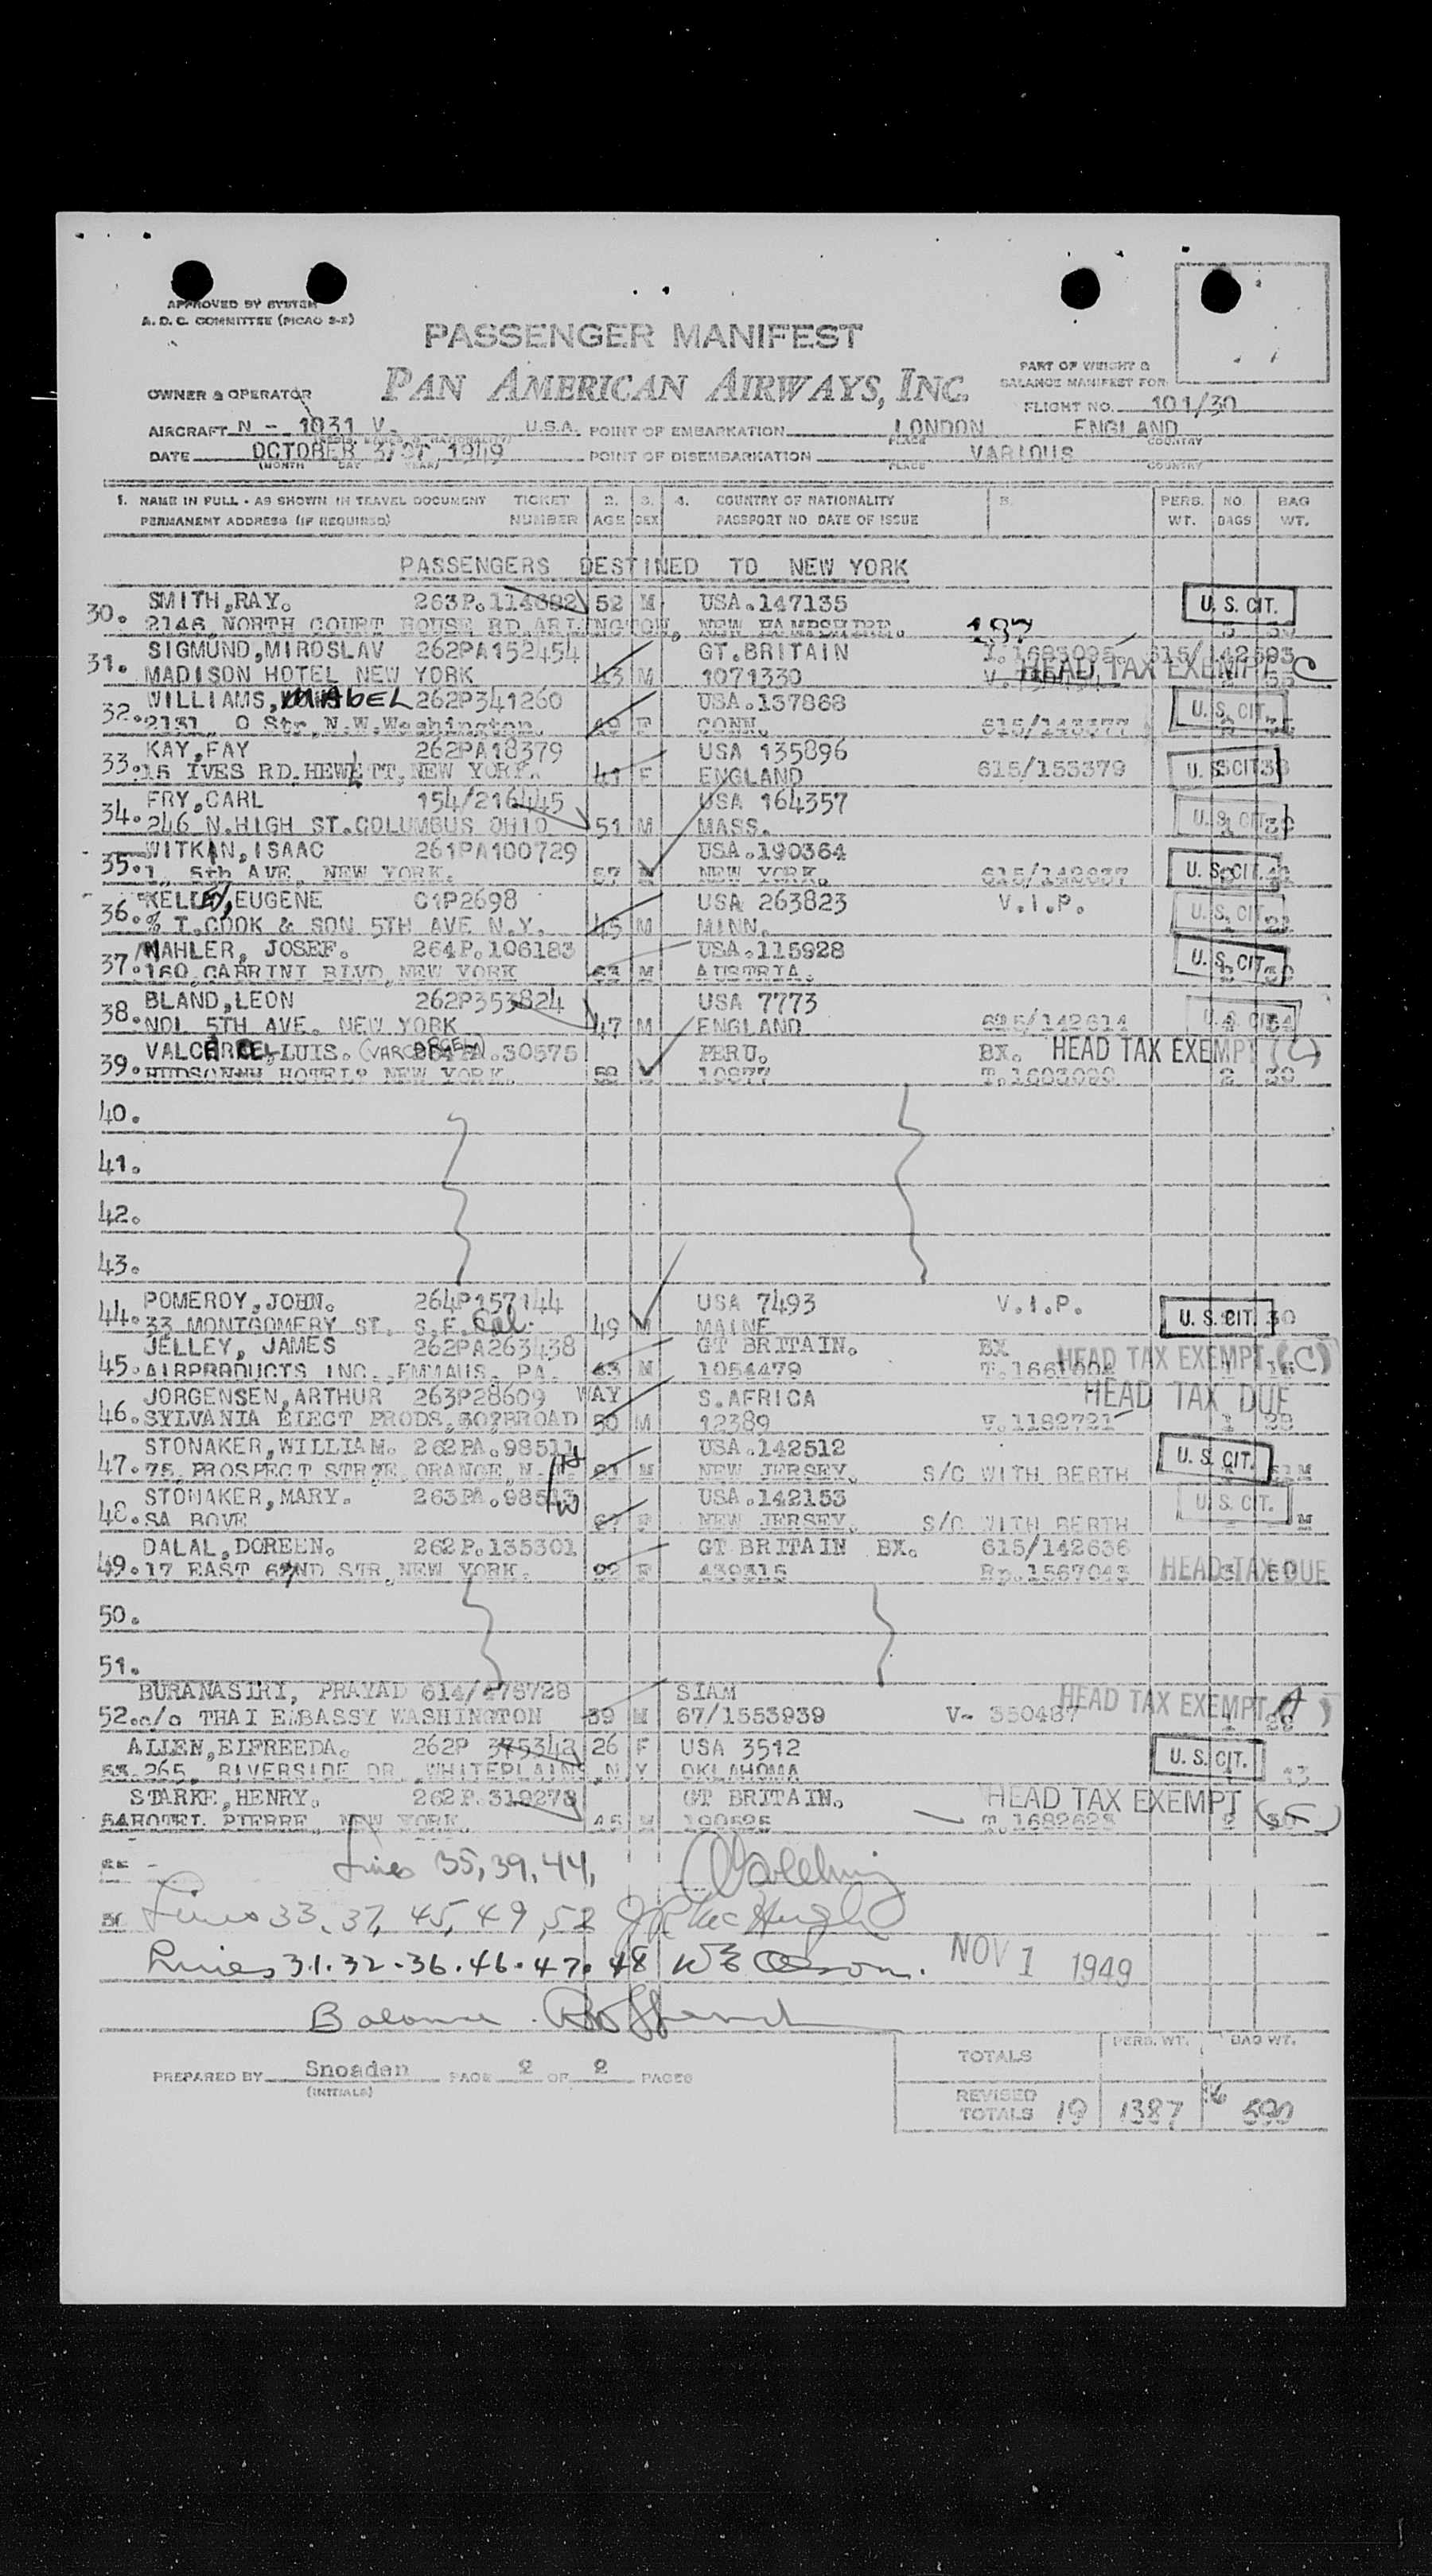 APPROVED BY SYSTEM
A. D. C. COMMITTEE (PICAO 2-2)
PASSENGER MANIFEST
PART OF WEIGHT &
BALANCE MANIFEST FOR
OWNER & OPERATOR PAN AMERICAN AIRWAYS, INC.
FLIGHT NO. 101/30
AIRCRAFT N - 1031 V. U.S.A. POINT OF EMBARKATION LONDON ENGLAND
PLACE COUNTRY
DATE OCTOBER 1949 POINT OF DISEMBARKATION VARIOUS
(MONTH DAY YEAR) PLACE COUNTRY
1. NAME IN FULL - AS SHOWN IN TRAVEL DOCUMENT TICKET 2. 3. 4. COUNTRY OF NATIONALITY 5. PERS. NO. BAG
PERMANENT ADDRESS (IF REQUIRED) NUMBER AGE SEX PASSPORT NO. DATE OF ISSUE WT. BAGS WT.
PASSENGERS DESTINED TO NEW YORK
30. SMITH,RAY. 263P.114682 52 M USA.147135 U. S. CIT.
2146,NORTH COURT HOUSE RD.ARLINGTON, NEW HAMPSHIRE. 197
31. SIGMUND,MIROSLAV 262PA152454 GT.BRITAIN 615/142593
MADISON HOTEL NEW YORK 43 M 1071330 HEAD TAX EXEMPT C
32. WILLIAMS, MABEL 262P341260 USA.137868 U. S. CIT.
2131, O Str,N.W.Washington. 49 F CONN. 615/143377
33. KAY,FAY 262PA18379 USA 135896
15 IVES RD.HEWLETT,NEW YORK. 41 F ENGLAND 615/153379 U. S. CIT.
34. FRY,CARL 154/216445 USA 164357
246 N.HIGH ST.COLUMBUS OHIO 51 M MASS. U. S. CIT.
35. WITKIN,ISAAC 261PA100729 USA.190364
1, 5th AVE, NEW YORK. 57 M NEW YORK. 615/142637 U. S. CIT.
36. EUGENE C1P2698 USA 263823 V.I.P.
% T.COOK & SON 5TH AVE N.Y. 45 M MINN. U. S. CIT.
37. MAHLER, JOSEF. 264P.106183 USA.115928
160,CABRINI BLVD,NEW YORK 63 M AUSTRIA. U. S. CIT.
38. BLAND,LEON 262P353824 USA 7773
NO1 5TH AVE. NEW YORK 47 M ENGLAND 615/142614 U. S. CIT.
39. VALCARCEL,LUIS. PERU. BX. HEAD TAX EXEMPT (C)
HOTEL NEW YORK. 58 M 10877 T.1603090 2 30
40.
41.
42.
43.
44. POMEROY,JOHN. 264P157144 USA 7493 V.I.P.
33 MONTGOMERY ST. S.F. Cal. 49 M MAINE U. S. CIT. 30
45. JELLEY, JAMES 262PA263438 GT BRITAIN. BX HEAD TAX EXEMPT (C)
AIRPRODUCTS INC.,EMMAUS. PA. 43 M 1054479
46. JORGENSEN,ARTHUR 263P28609 WAY S.AFRICA HEAD TAX DUE
SYLVANIA ELECT PRODS, BROAD 50 M 12389 V.1182721
47. STONAKER,WILLIAM. 262PA.98511 USA.142512
75,PROSPECT STR,E. ORANGE,N. M NEW JERSEY. S/C WITH BERTH U. S. CIT.
48. STONAKER,MARY. 263PA.98513 USA.142153 U. S. CIT.
SA BOVE F NEW JERSEY. S/C WITH BERTH
49. DALAL,DOREEN. 262P.135301 GT BRITAIN BX. 615/142636
17 EAST 67ND STR,NEW YORK. 22 F 439315 Rp.1567043 HEAD TAX DUE
50.
51.
52. BURANASIRI, PRAYAD 614/475728 SIAM HEAD TAX EXEMPT A
c/o THAI EMBASSY WASHINGTON 39 M 67/1553939 V- 350487
ALLEN,ELFREEDA. 262P 375342 26 F USA 3512 U. S. CIT.
53.265, RIVERSIDE DR.,WHITEPLAINS,N Y OKLAHOMA 43
STARKE,HENRY. 262P.319278 GT BRITAIN. HEAD TAX EXEMPT
54HOTEL PIERRE, NEW YORK. 45 M 190525 T.1682628
Lines 35, 39, 44,
Lines 33, 37, 45, 49, 52 McHugh
Lines 31. 32. 36. 46. 47. 48 NOV 1 1949
Balance
TOTALS PERS. WT. BAG WT.
PREPARED BY Snoaden PAGE 2 OF 2 PAGES
(INITIALS)
REVISED TOTALS 19 1387 590